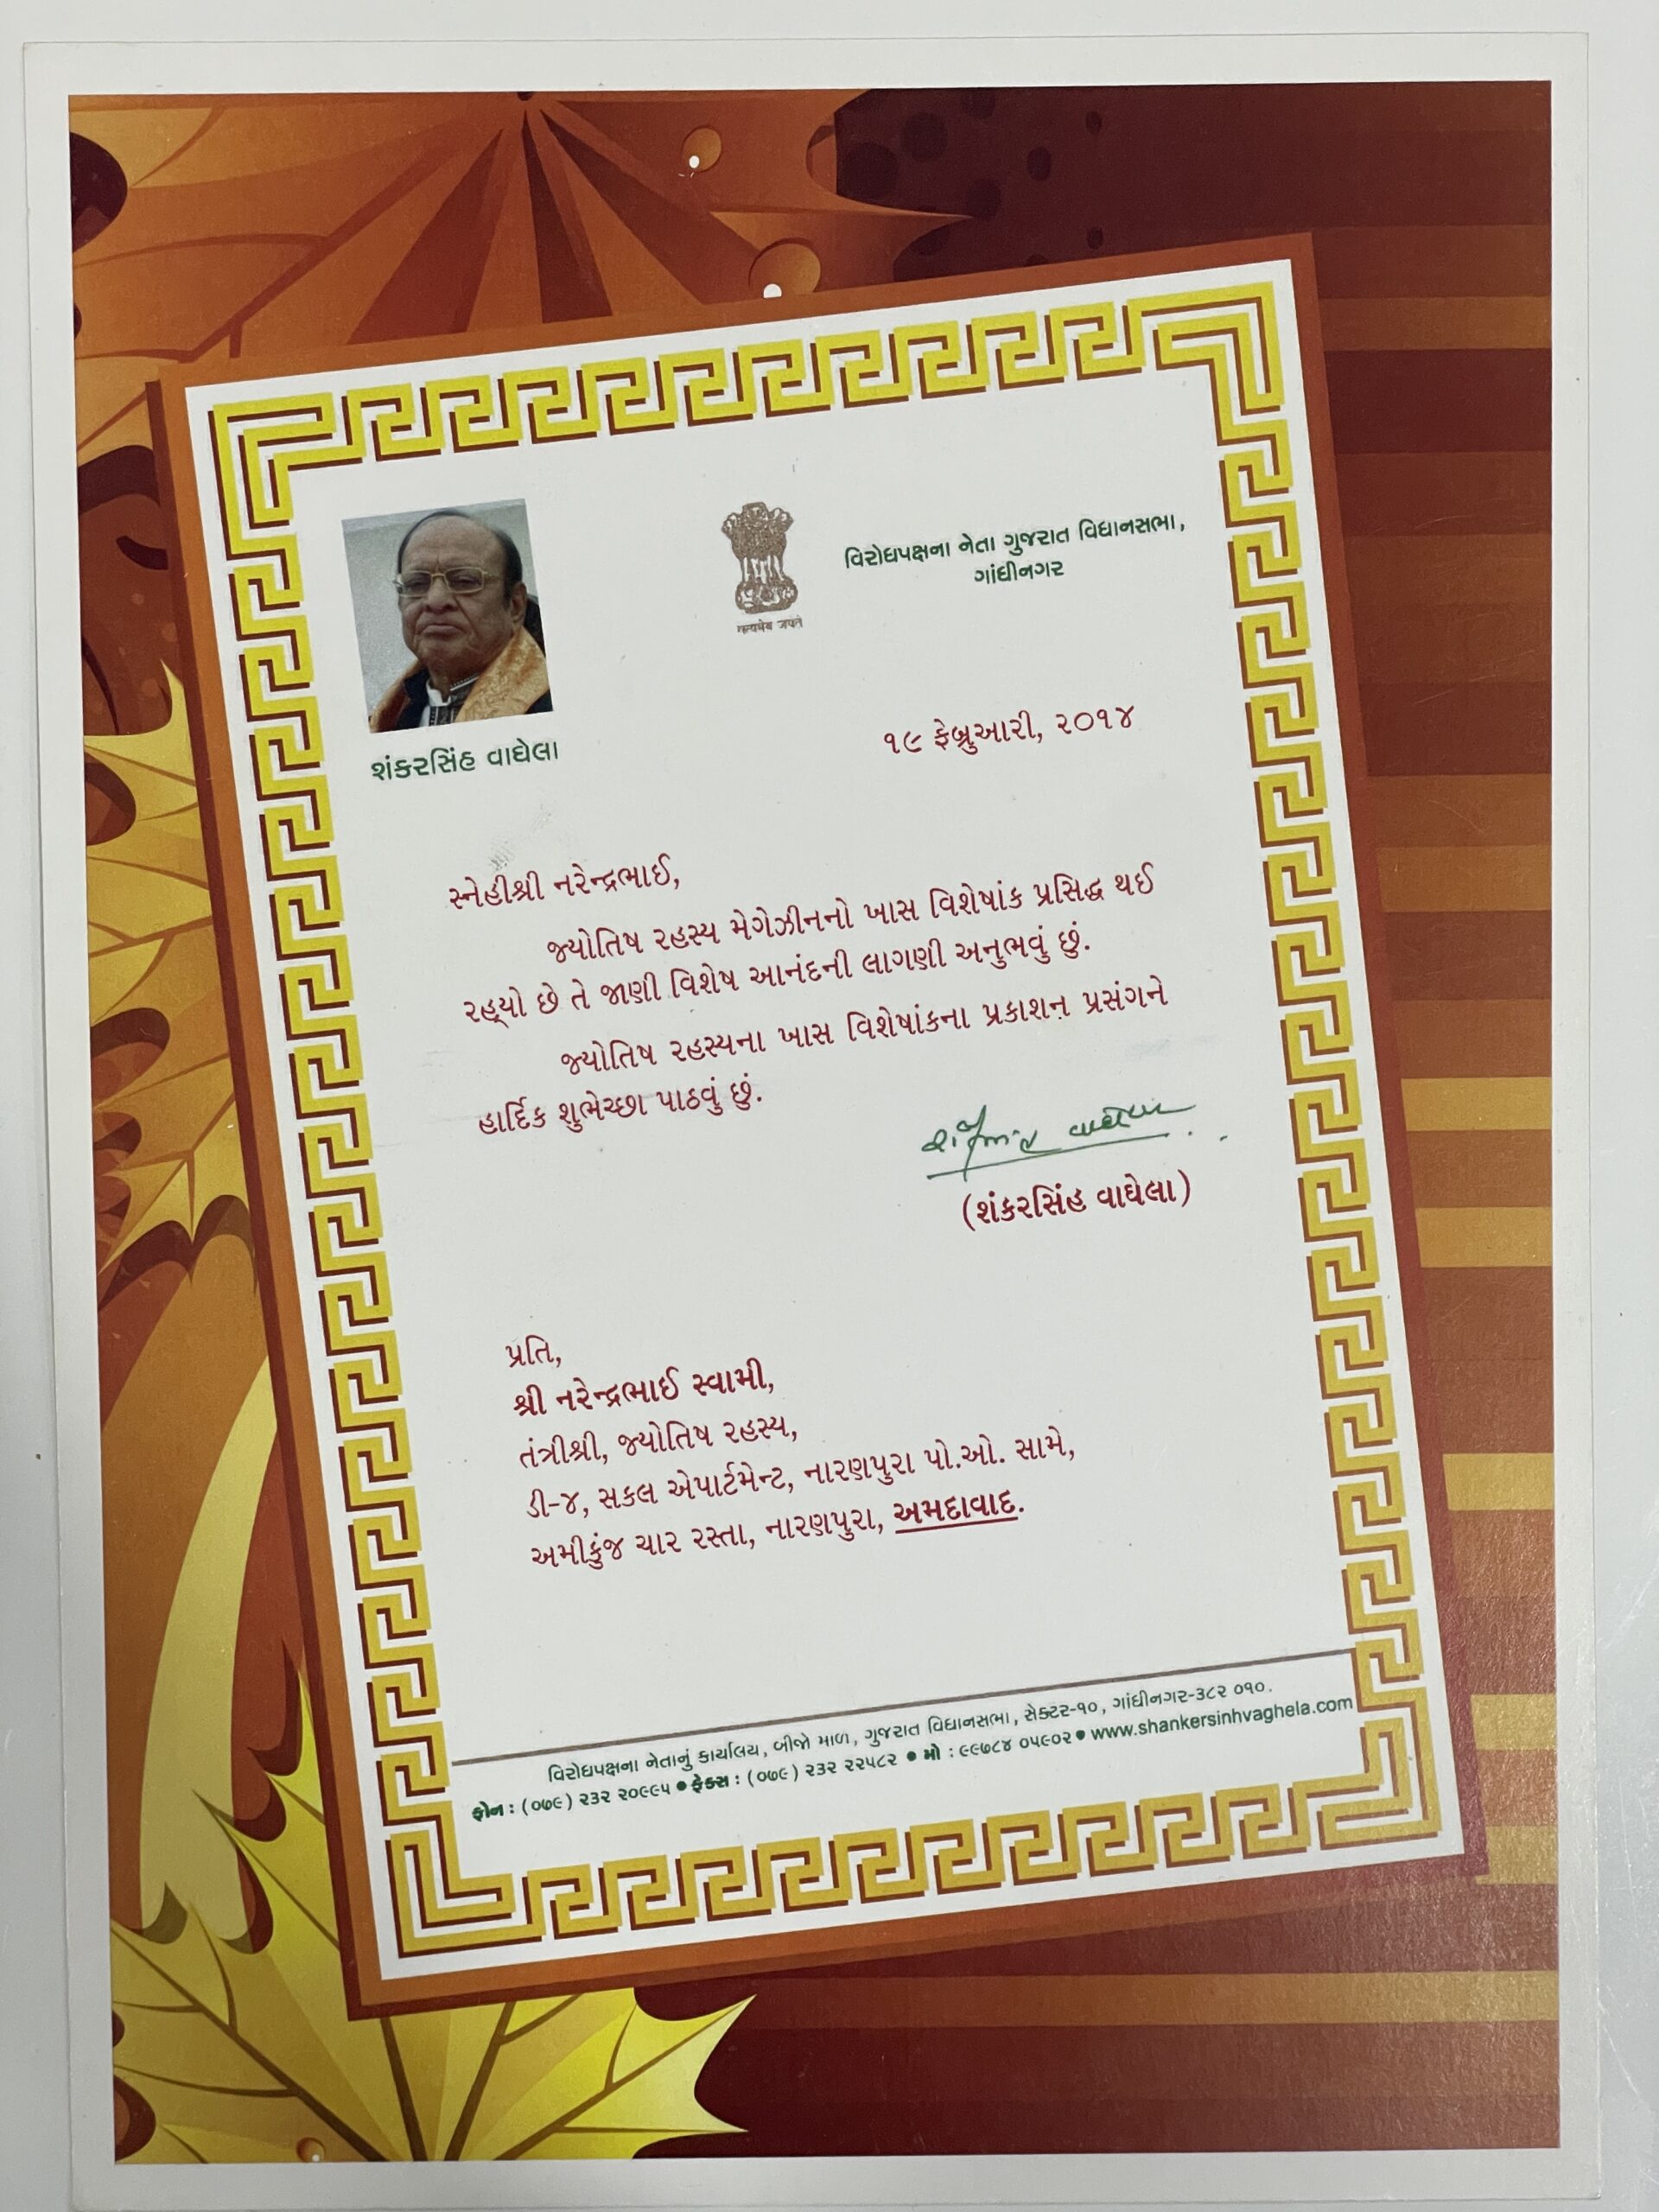 सत्यमेव जयते
વિરોધપક્ષના નેતા ગુજરાત વિધાનસભા,
ગાંધીનગર
શંકરસિંહ વાઘેલા
૧૯ ફેબ્રુઆરી, ૨૦૧૪
સ્નેહીશ્રી નરેન્દ્રભાઈ,
જ્યોતિષ રહસ્ય મેગેઝીનનો ખાસ વિશેષાંક પ્રસિદ્ધ થઈ
રહ્યો છે તે જાણી વિશેષ આનંદની લાગણી અનુભવું છું.
જ્યોતિષ રહસ્યના ખાસ વિશેષાંકના પ્રકાશન પ્રસંગને
હાર્દિક શુભેચ્છા પાઠવું છું.
શંકરસિંહ વાઘેલા
(શંકરસિંહ વાઘેલા)
પ્રતિ,
શ્રી નરેન્દ્રભાઈ સ્વામી,
તંત્રીશ્રી, જ્યોતિષ રહસ્ય,
ડી-૪, સકલ એપાર્ટમેન્ટ, નારણપુરા પો.ઓ. સામે,
અમીકુંજ ચાર રસ્તા, નારણપુરા, અમદાવાદ.
વિરોધપક્ષના નેતાનું કાર્યાલય, બીજો માળ, ગુજરાત વિધાનસભા, સેક્ટર-૧૦, ગાંધીનગર-૩૮૨ ૦૧૦.
ફોન : (૦૭૯) ૨૩૨ ૨૦૯૯૫ • ફેક્સ : (૦૭૯) ૨૩૨ ૨૨૫૮૨ • મો : ૯૯૭૮૪ ૦૫૯૦૨ • www.shankersinhvaghela.com